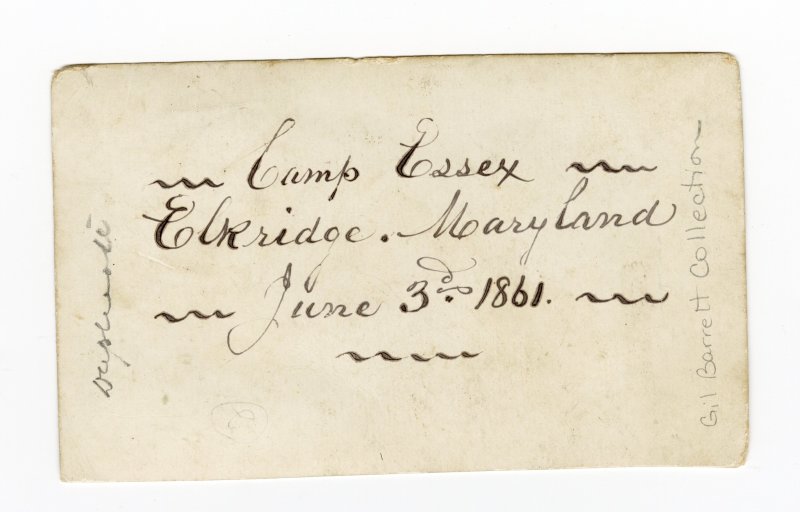 Camp Essex
Elkridge. Maryland
June 3d. 1861.
Gil Barrett Collection